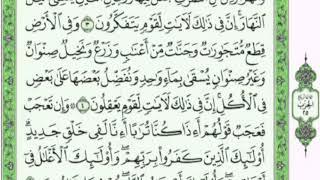 ٱلنَّهَارَ إِنَّ فِى ذَٰلِكَ لَـَٔايَـٰتٍ لِّقَوْمٍ يَتَفَكَّرُونَ ٣ وَفِى ٱلْأَرْضِ
قِطَعٌ مُّتَجَـٰوِرَٰتٌ وَجَنَّـٰتٌ مِّنْ أَعْنَـٰبٍ وَزَرْعٌ وَنَخِيلٌ صِنْوَانٌ
وَغَيْرُ صِنْوَانٍ يُسْقَىٰ بِمَآءٍ وَٰحِدٍ وَنُفَضِّلُ بَعْضَهَا عَلَىٰ بَعْضٍ
فِى ٱلْأُكُلِ إِنَّ فِى ذَٰلِكَ لَـَٔايَـٰتٍ لِّقَوْمٍ يَعْقِلُونَ ٤ وَإِن تَعْجَبْ
فَعَجَبٌ قَوْلُهُمْ أَءِذَا كُنَّا تُرَٰبًا أَءِنَّا لَفِى خَلْقٍ جَدِيدٍ
أُو۟لَـٰٓئِكَ ٱلَّذِينَ كَفَرُوا۟ بِرَبِّهِمْ وَأُو۟لَـٰٓئِكَ ٱلْأَغْلَـٰلُ فِىٓ